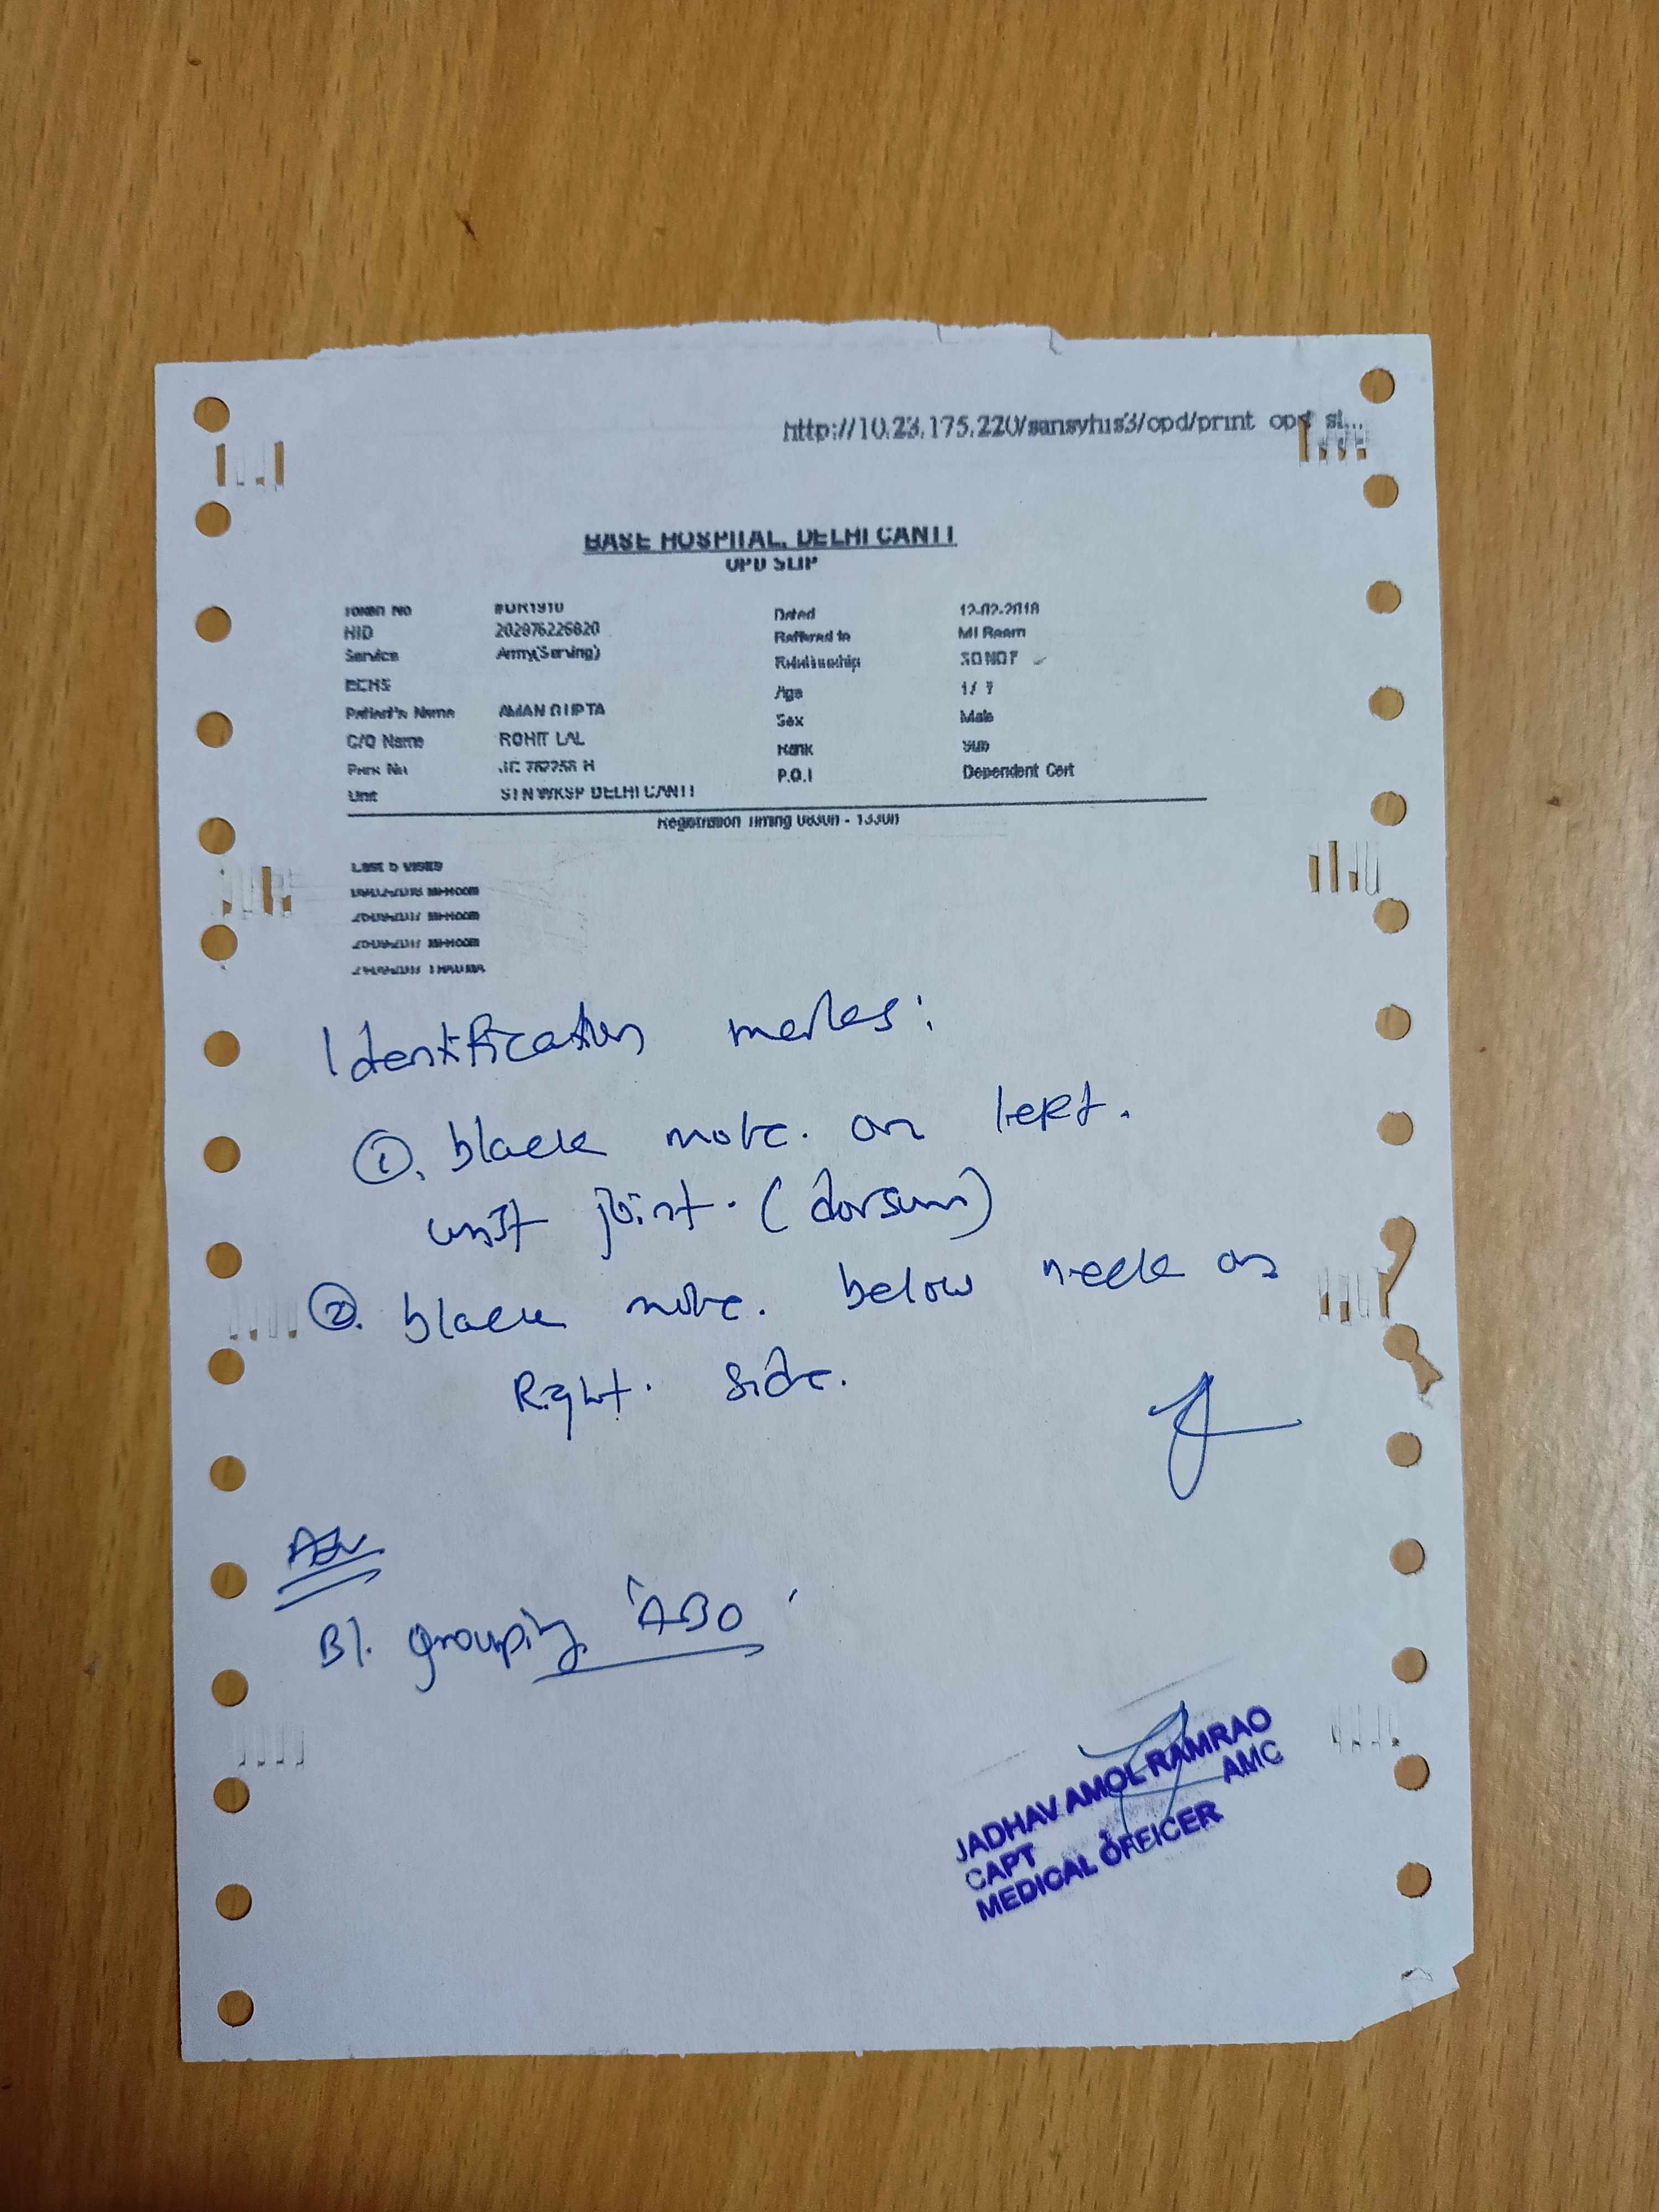 http://10.23.175.220/sansyhis3/opd/print_opd_sl...
BASE HOSPITAL, DELHI CANTT
OPD SLIP
Token No #DR1910 Dated 12-02-2018
HID 202976226820 Reffered to MI Room
Service Army(Serving) Relationship SON OF
ECHS Age
Patient's Name AMAN GUPTA Sex Male
C/O Name ROHIT LAL Rank Sub
Pers No JC 762258 H P.O.I Dependent Cert
Unit STN WKSP DELHI CANTT
Registration Timing 0830h - 1330h
Last 5 Visits
MI-Room
MI-Room
MI-Room
TRAUMA
Identification marks:
①. black mole. on left.
wrist joint. (dorsum)
②. black mole. below neck on
Right. side.
Adv
Bl. grouping 'ABO'
JADHAV AMOL RAMRAO
CAPT AMC
MEDICAL OFFICER